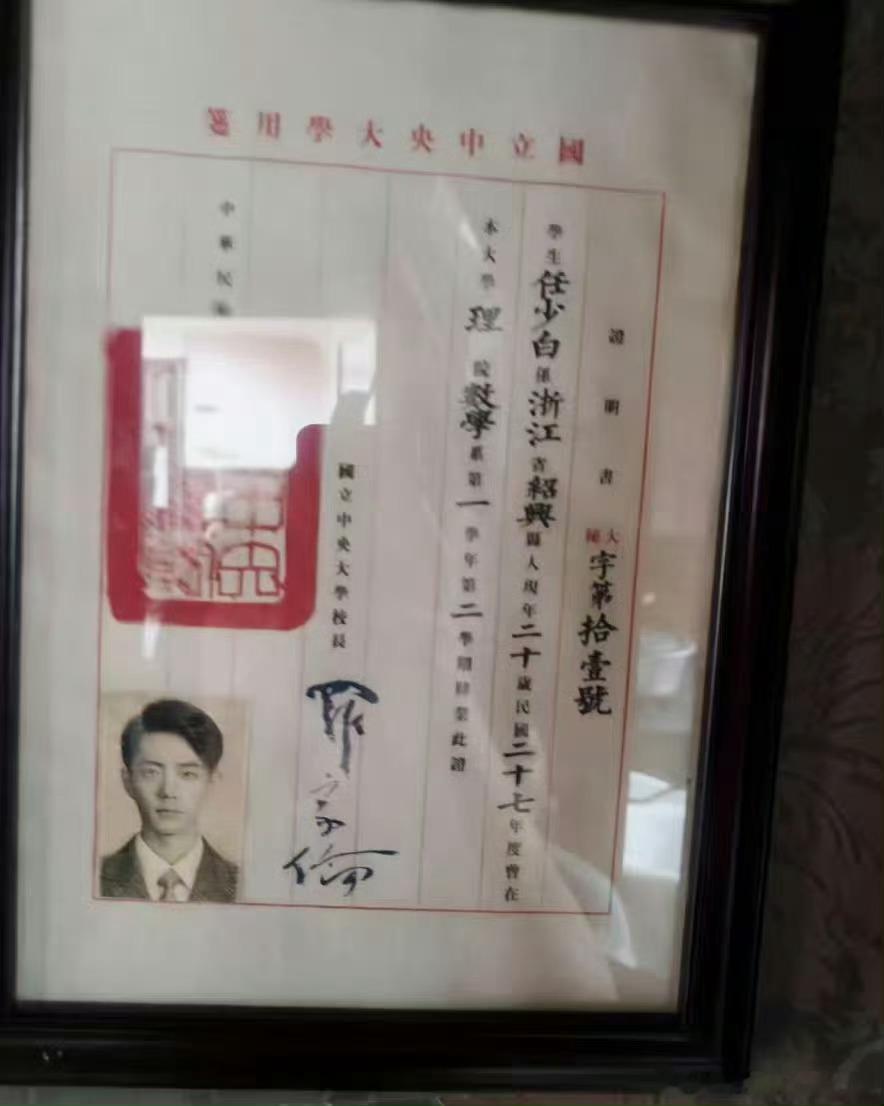 國立中央大學用箋
證明書 大 字第拾壹號
學生任少白係浙江省紹興縣人現年二十歲民國二十七年度曾在
本大學理院數學系第一學年第二學期肄業此證
國立中央大學校長
羅家倫
中華民
中央